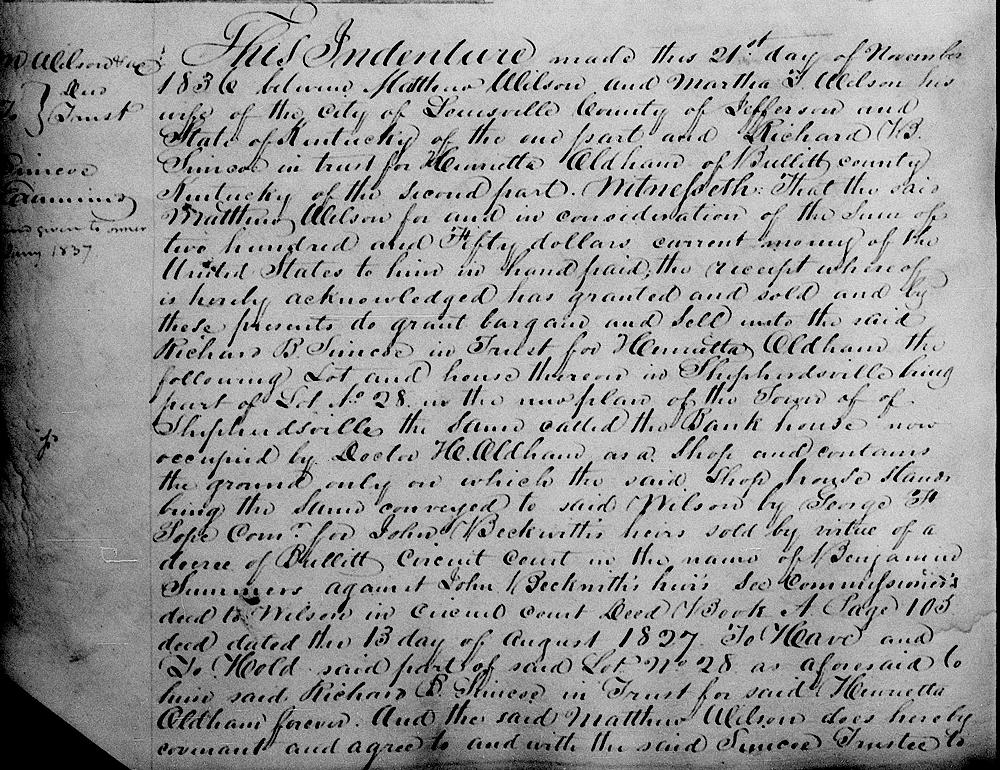 Wilson & ux
Deed
To } Trust
Simcoe
Examined
and given to owner
1837
This Indenture made this 21st day of November
1836 between Matthew Wilson and Martha T. Wilson his
wife of the city of Louisville County of Jefferson and
State of Kentucky of the one part and Richard B.
Simcoe in trust for Henrietta Oldham of Bullitt county
Kentucky of the second part. Witnesseth: That the said
Matthew Wilson for and in consideration of the Sum of
two hundred and Fifty dollars current money of the
United States to him in hand paid, the receipt whereof
is hereby acknowledged has granted and sold and by
these presents do grant bargain and Sell unto the said
Richard B. Simcoe in Trust for Henrietta Oldham the
following Lot and house thereon in Shepherdsville being
part of Lot No 28 in the new plan of the Town of of
Shepherdsville the Same called the Bank house now
occupied by Doctor H. Oldham as a Shop and contains
the ground only on which the said Shop house stands
being the Same conveyed to said Wilson by George
Pope Comr. for John Beckwith's heirs sold by virtue of a
decree of Bullitt Circuit Court in the name of Benjamin
Summers against John Beckwith's heirs See Commissioner's
deed to Wilson in Circuit Court Deed Book A Page 103
deed dated the 13 day of August 1827. To Have and
To Hold said part of said Lot No 28 as aforesaid to
him said Richard B. Simcoe in Trust for said Henrietta
Oldham forever. And the said Matthew Wilson does hereby
covenant and agree to and with the said Simcoe Trustee to